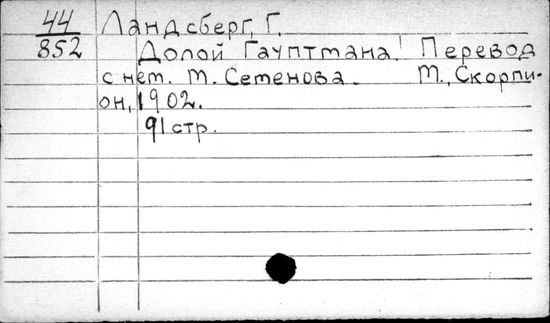 44
852
Ландсберг, Г.
Долой Гауптмана! Перевод
с нем. М. Семенова. М., Скорпи-
он, 1902.
91 стр.